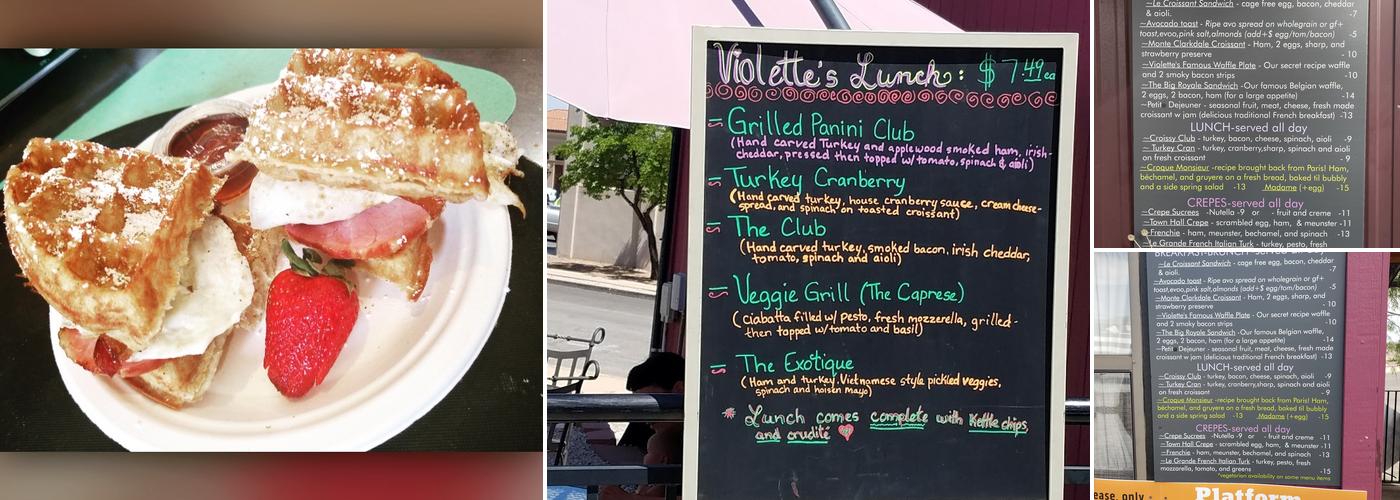 Violette's Lunch: $7.49ea
Grilled Panini Club
(Hand carved Turkey and applewood smoked ham, irish-
cheddar, pressed then topped w/tomato, spinach & aioli)
Turkey Cranberry
(Hand carved turkey, house cranberry sauce, cream cheese-
spread, and spinach on toasted croissant)
The Club
(Hand carved turkey, smoked bacon, irish cheddar,
tomato, spinach and aioli)
Veggie Grill (The Caprese)
(ciabatta filled w/ pesto, fresh mozzerella, grilled-
then topped w/tomato and basil)
The Exotique
(Ham and turkey, Vietnamese style pickled veggies,
spinach and hoisin mayo)
* Lunch comes complete with Kettle chips
and crudité
~Le Croissant Sandwich - cage free egg, bacon, cheddar
& aioli. -7
~Avocado toast - Ripe avo spread on wholegrain or gf+
toast,evoo,pink salt,almonds (add+$ egg/tom/bacon) -5
~Monte Clarkdale Croissant - Ham, 2 eggs, sharp, and
strawberry preserve - 10
~Violette's Famous Waffle Plate - Our secret recipe waffle
and 2 smoky bacon strips -10
~The Big Royale Sandwich -Our famous Belgian waffle,
2 eggs, 2 bacon, ham (for a large appetite) -14
~Petit Dejeuner - seasonal fruit, meat, cheese, fresh made
croissant w jam (delicious traditional French breakfast) -13
LUNCH-served all day
~Croissy Club - turkey, bacon, cheese, spinach, aioli -9
~ Turkey Cran - turkey, cranberry,sharp, spinach and aioli
on fresh croissant - 9
~Croque Monsieur -recipe brought back from Paris! Ham,
béchamel, and gruyere on a fresh bread, baked til bubbly
and a side spring salad -13 Madame (+egg) -15
CREPES-served all day
~Crepe Sucrees -Nutella -9 or - fruit and creme -11
~Town Hall Crepe - scrambled egg, ham, & meunster -11
~Frenchie - ham, meunster, bechamel, and spinach -13
~Le Grande French Italian Turk - turkey, pesto, fresh
BREAKFAST-BRUNCH -served all
~Le Croissant Sandwich - cage free egg, bacon, cheddar
& aioli. -7
~Avocado toast - Ripe avo spread on wholegrain or gf+
toast,evoo,pink salt,almonds (add+$ egg/tom/bacon) -5
~Monte Clarkdale Croissant - Ham, 2 eggs, sharp, and
strawberry preserve - 10
~Violette's Famous Waffle Plate - Our secret recipe waffle
and 2 smoky bacon strips -10
~The Big Royale Sandwich -Our famous Belgian waffle,
2 eggs, 2 bacon, ham (for a large appetite) -14
~Petit Dejeuner - seasonal fruit, meat, cheese, fresh made
croissant w jam (delicious traditional French breakfast) -13
LUNCH-served all day
~Croissy Club - turkey, bacon, cheese, spinach, aioli -9
~ Turkey Cran - turkey, cranberry,sharp, spinach and aioli
on fresh croissant - 9
~Croque Monsieur -recipe brought back from Paris! Ham,
béchamel, and gruyere on a fresh bread, baked til bubbly
and a side spring salad -13 Madame (+egg) -15
CREPES-served all day
~Crepe Sucrees -Nutella -9 or - fruit and creme -11
~Town Hall Crepe - scrambled egg, ham, & meunster -11
~Frenchie - ham, meunster, bechamel, and spinach -13
~Le Grande French Italian Turk - turkey, pesto, fresh
mozzerella, tomato, and greens -15
*vegetarian availability on some menu items
ease, only
Platform